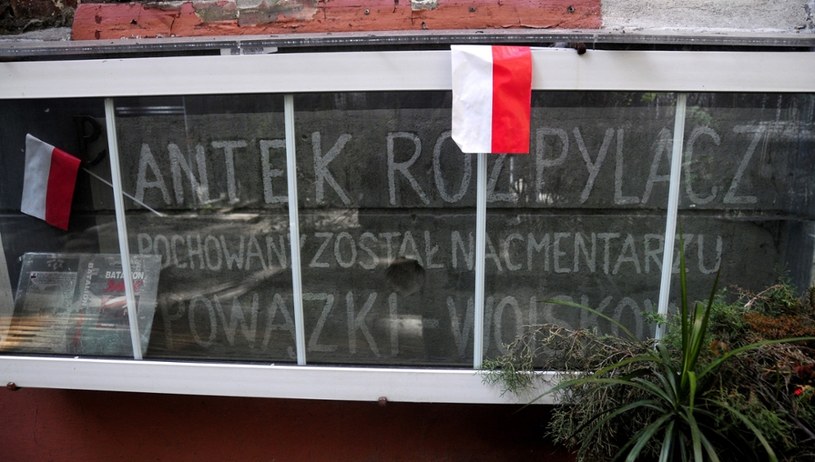 ANTEK ROZPYLACZ
POCHOWANY ZOSTAŁ NA CMENTARZU
POWĄZKI-WOJSKOWE
BATALION